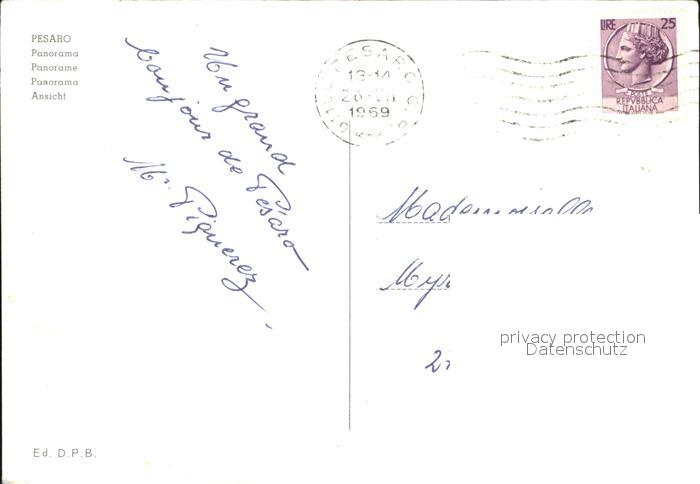 PESARO
Panorama
Panorame
Panorama
Ansicht
Un grand
bonjour de Pesaro
Mr. Piquerez
Ed. D.P.B.
PESARO
13-14
1969
LIRE 25
POSTE
REPVBBLICA
ITALIANA
Mademoiselle
Myr
2
privacy protection
Datenschutz